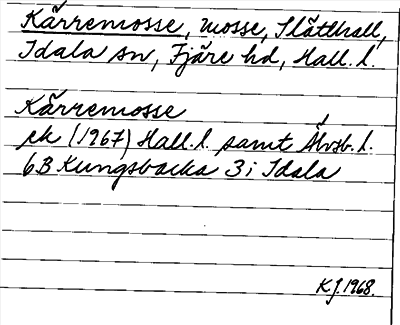 Kärremosse, mosse, Slätthall,
Idala sn, Fjäre hd, Hall. l.
Kärremosse
ek (1967) Hall. l. samt Älvsb. l.
6B Kungsbacka 3i Idala
K J. 1968.